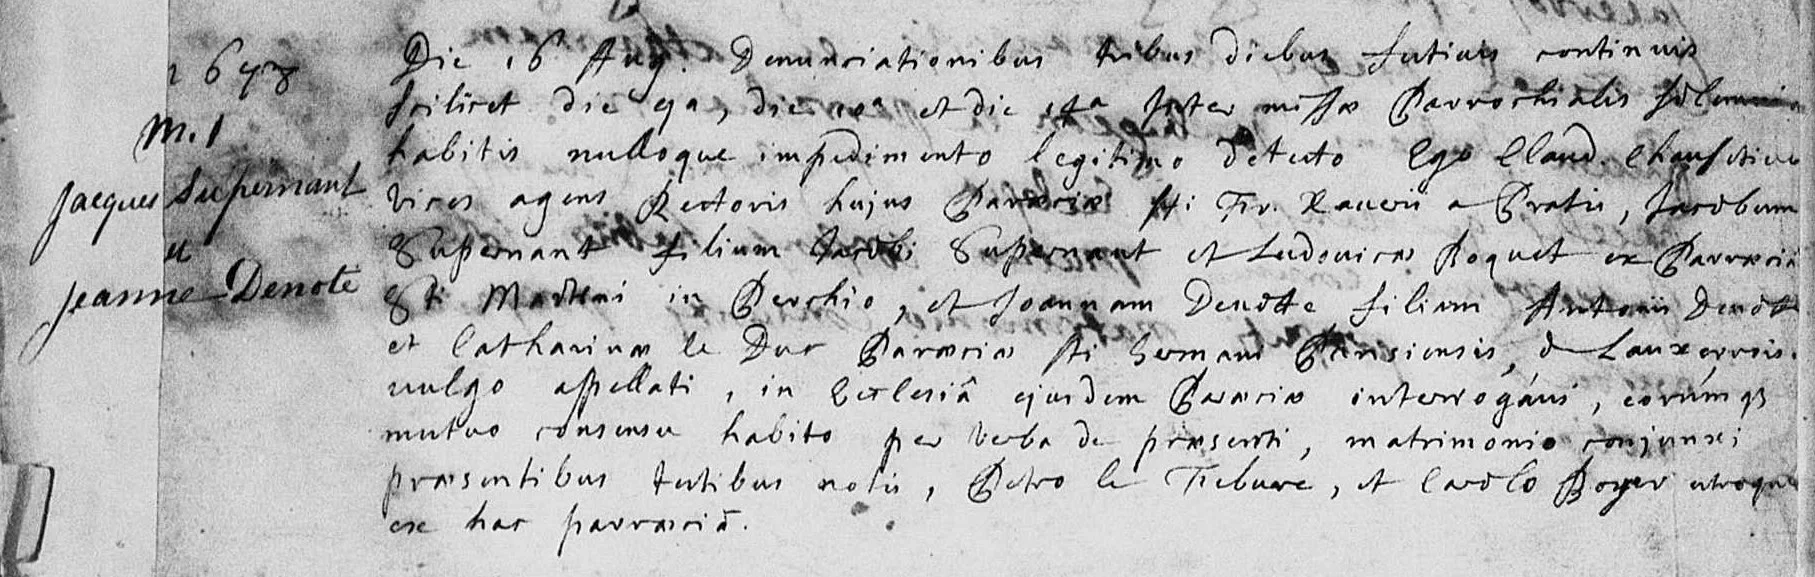 1678
m. 1
Jacques Supernant
et
Jeanne Denote
Die 16 Aug. Denunciationibus tribus diebus festivis continuis
scilicet die 7a, die 10a et die 14a Inter missæ Parrochialis solemnia
habitis nulloque impedimento legitimo detecto Ego Claud. Chauchetiere
vices agens Rectoris hujus Paræciæ Sti Fr. Xaverii a Pratis, Jacobum
Supernant filium Jacobi Supernant et Ludovicæ Boquet ex Parræciâ
Sti Martini in Perchio, et Joannam Denotte filiam Antonii Denotte
et Catharinæ le Duc Paræciæ sti Germani Parisiensis, d Lauxerrois.
vulgo appellati, in Ecclesiâ ejusdem Paræciæ interrogavi, eorumq3
mutuo consensu habito per verba de præsenti, matrimonio conjunxi
præsentibus testibus notis, Petro le Febure, et Carolo Boyer utroque
ex hac parræciâ.